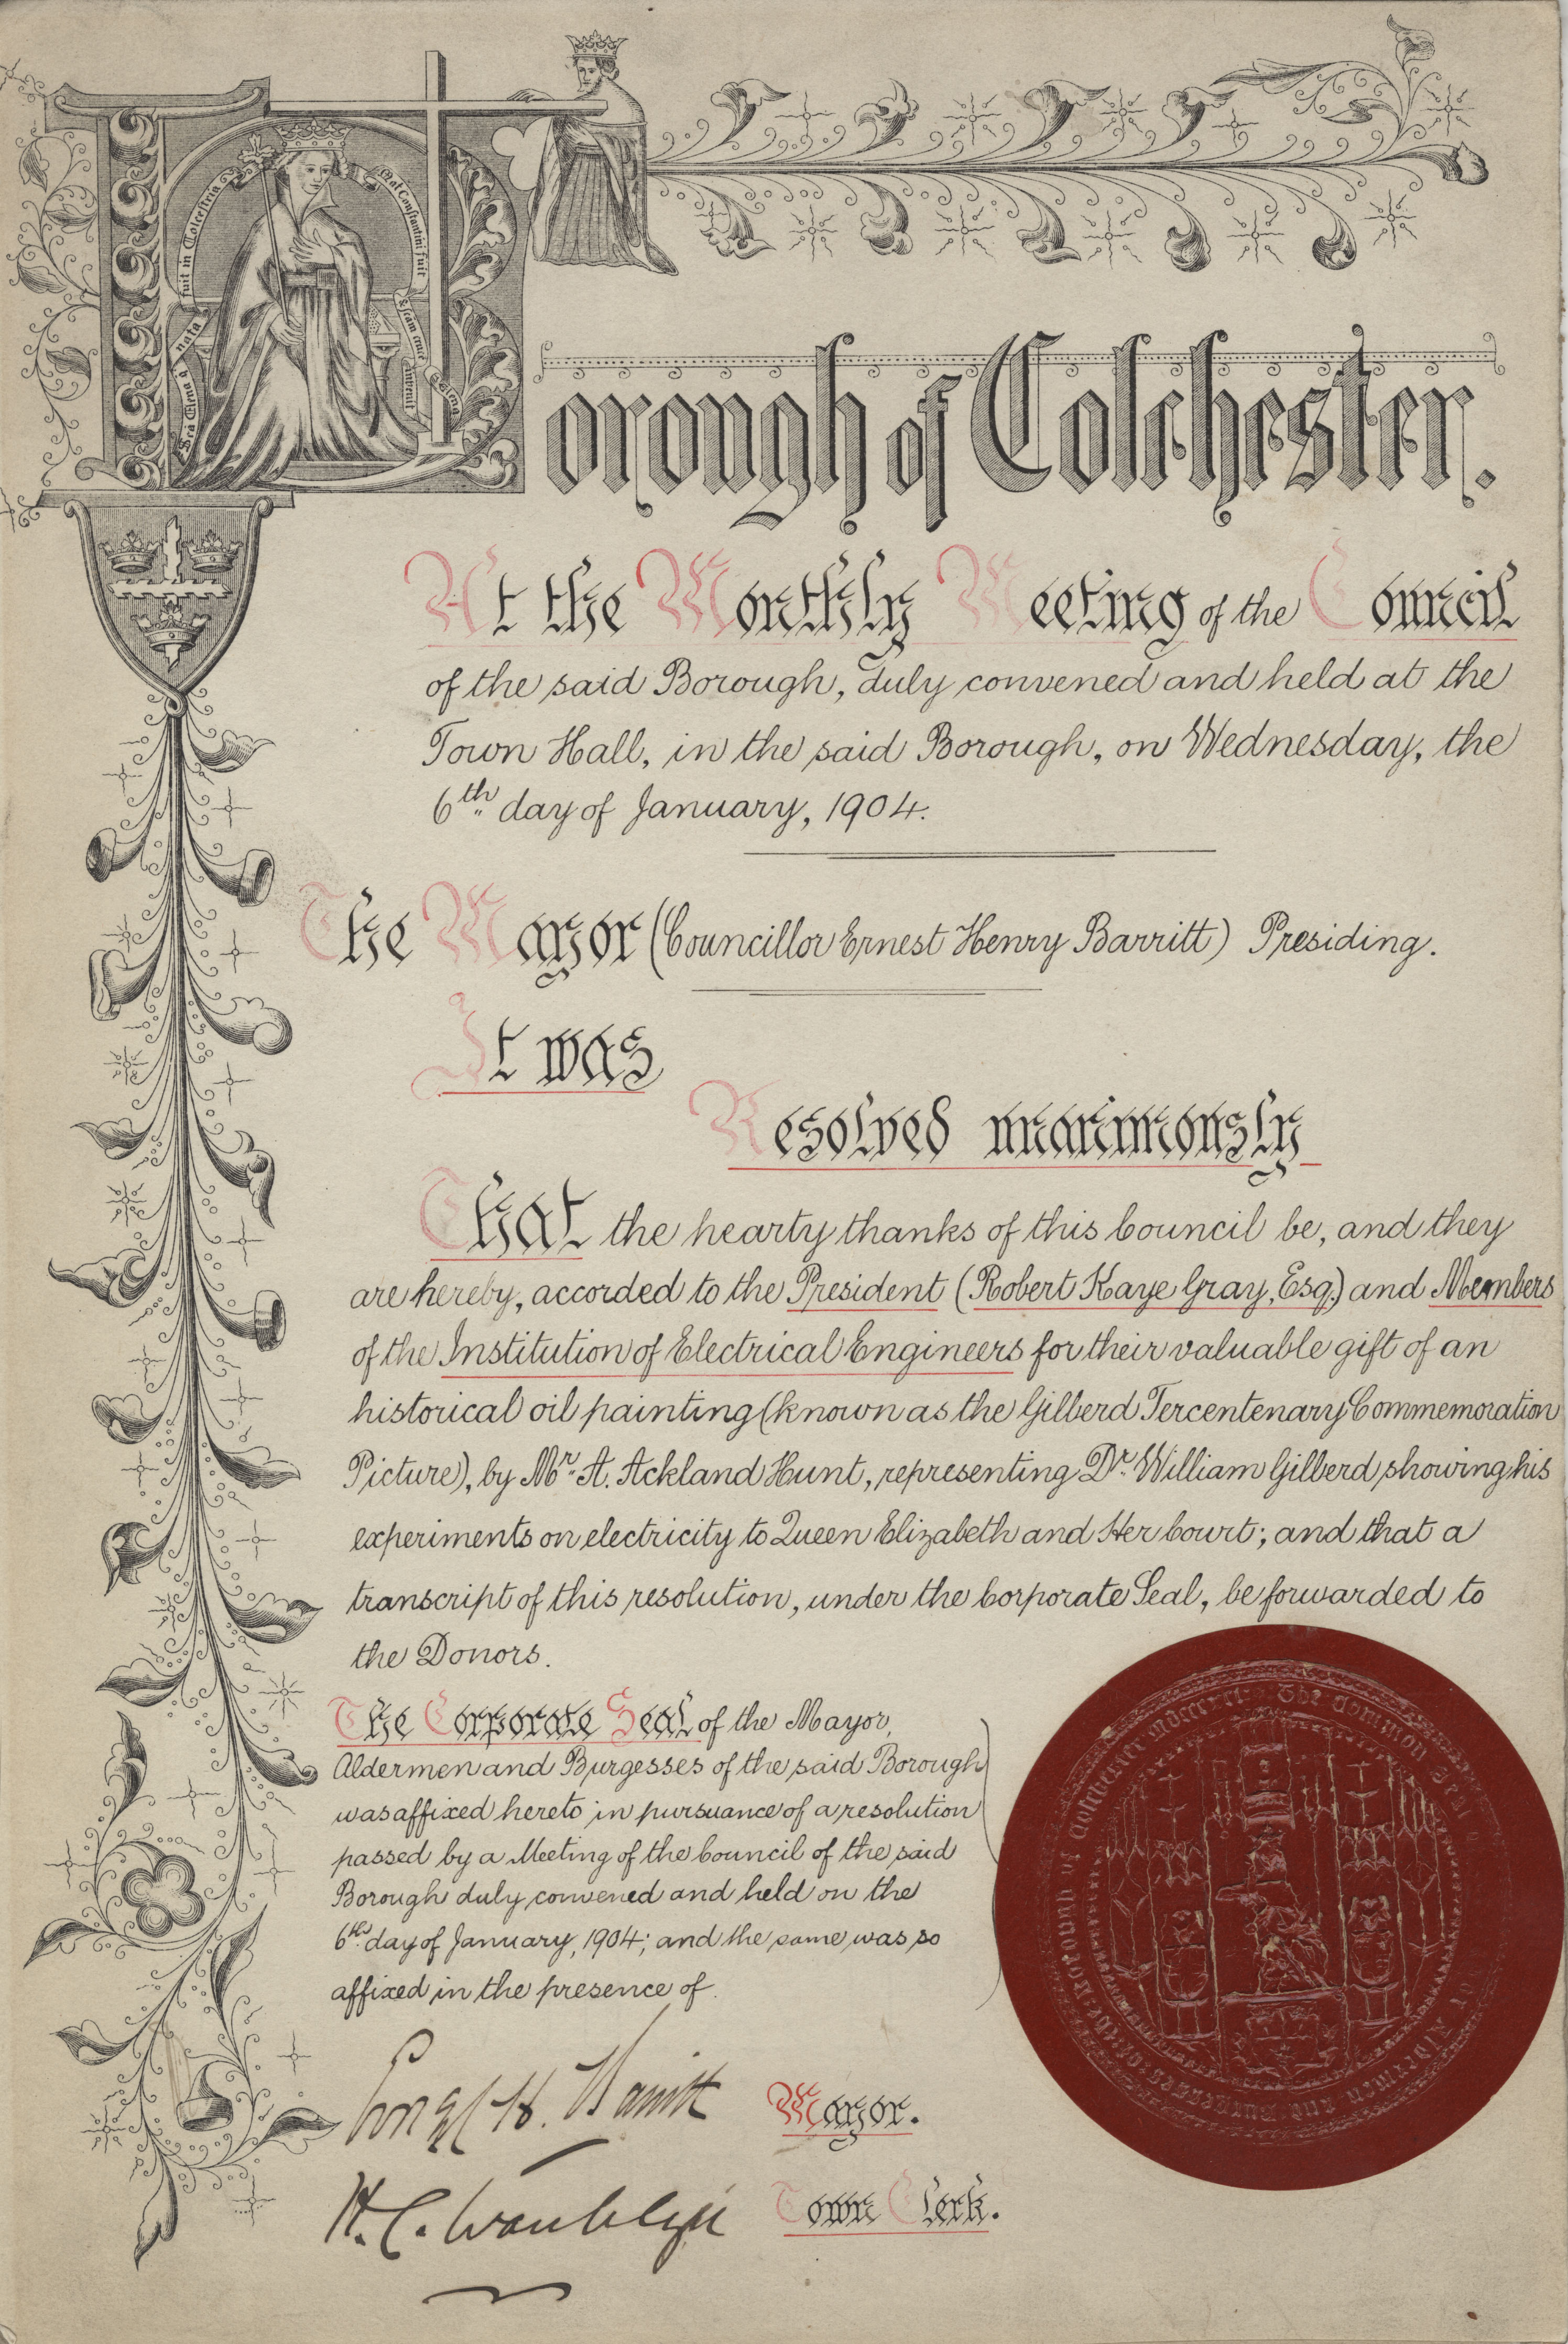 Borough of Colchester.
fuit in Colcestria
Mat Constantini fuit
nata
Sca Elena
& scam cruce
Invenit
Elena
At the Monthly Meeting of the Council
of the said Borough, duly convened and held at the
Town Hall, in the said Borough, on Wednesday, the
6th day of January, 1904.
The Mayor (Councillor Ernest Henry Barritt) Presiding.
It was
Resolved unanimously
That the hearty thanks of this Council be, and they
are hereby, accorded to the President (Robert Kaye Gray, Esq.) and Members
of the Institution of Electrical Engineers for their valuable gift of an
historical oil painting (known as the Gilberd Tercentenary Commemoration
Picture), by Mr. A. Ackland Hunt, representing Dr. William Gilberd showing his
experiments on electricity to Queen Elizabeth and Her Court; and that a
transcript of this resolution, under the Corporate Seal, be forwarded to
the Donors.
The Corporate Seal of the Mayor,
Aldermen and Burgesses of the said Borough
was affixed hereto in pursuance of a resolution
passed by a Meeting of the Council of the said
Borough duly convened and held on the
6th day of January, 1904; and the same was so
affixed in the presence of.
The Common Seal Aldermen and Burgesses of the Borough of Colchester
H. Barritt Mayor.
H. C. Wanklyn Town Clerk.